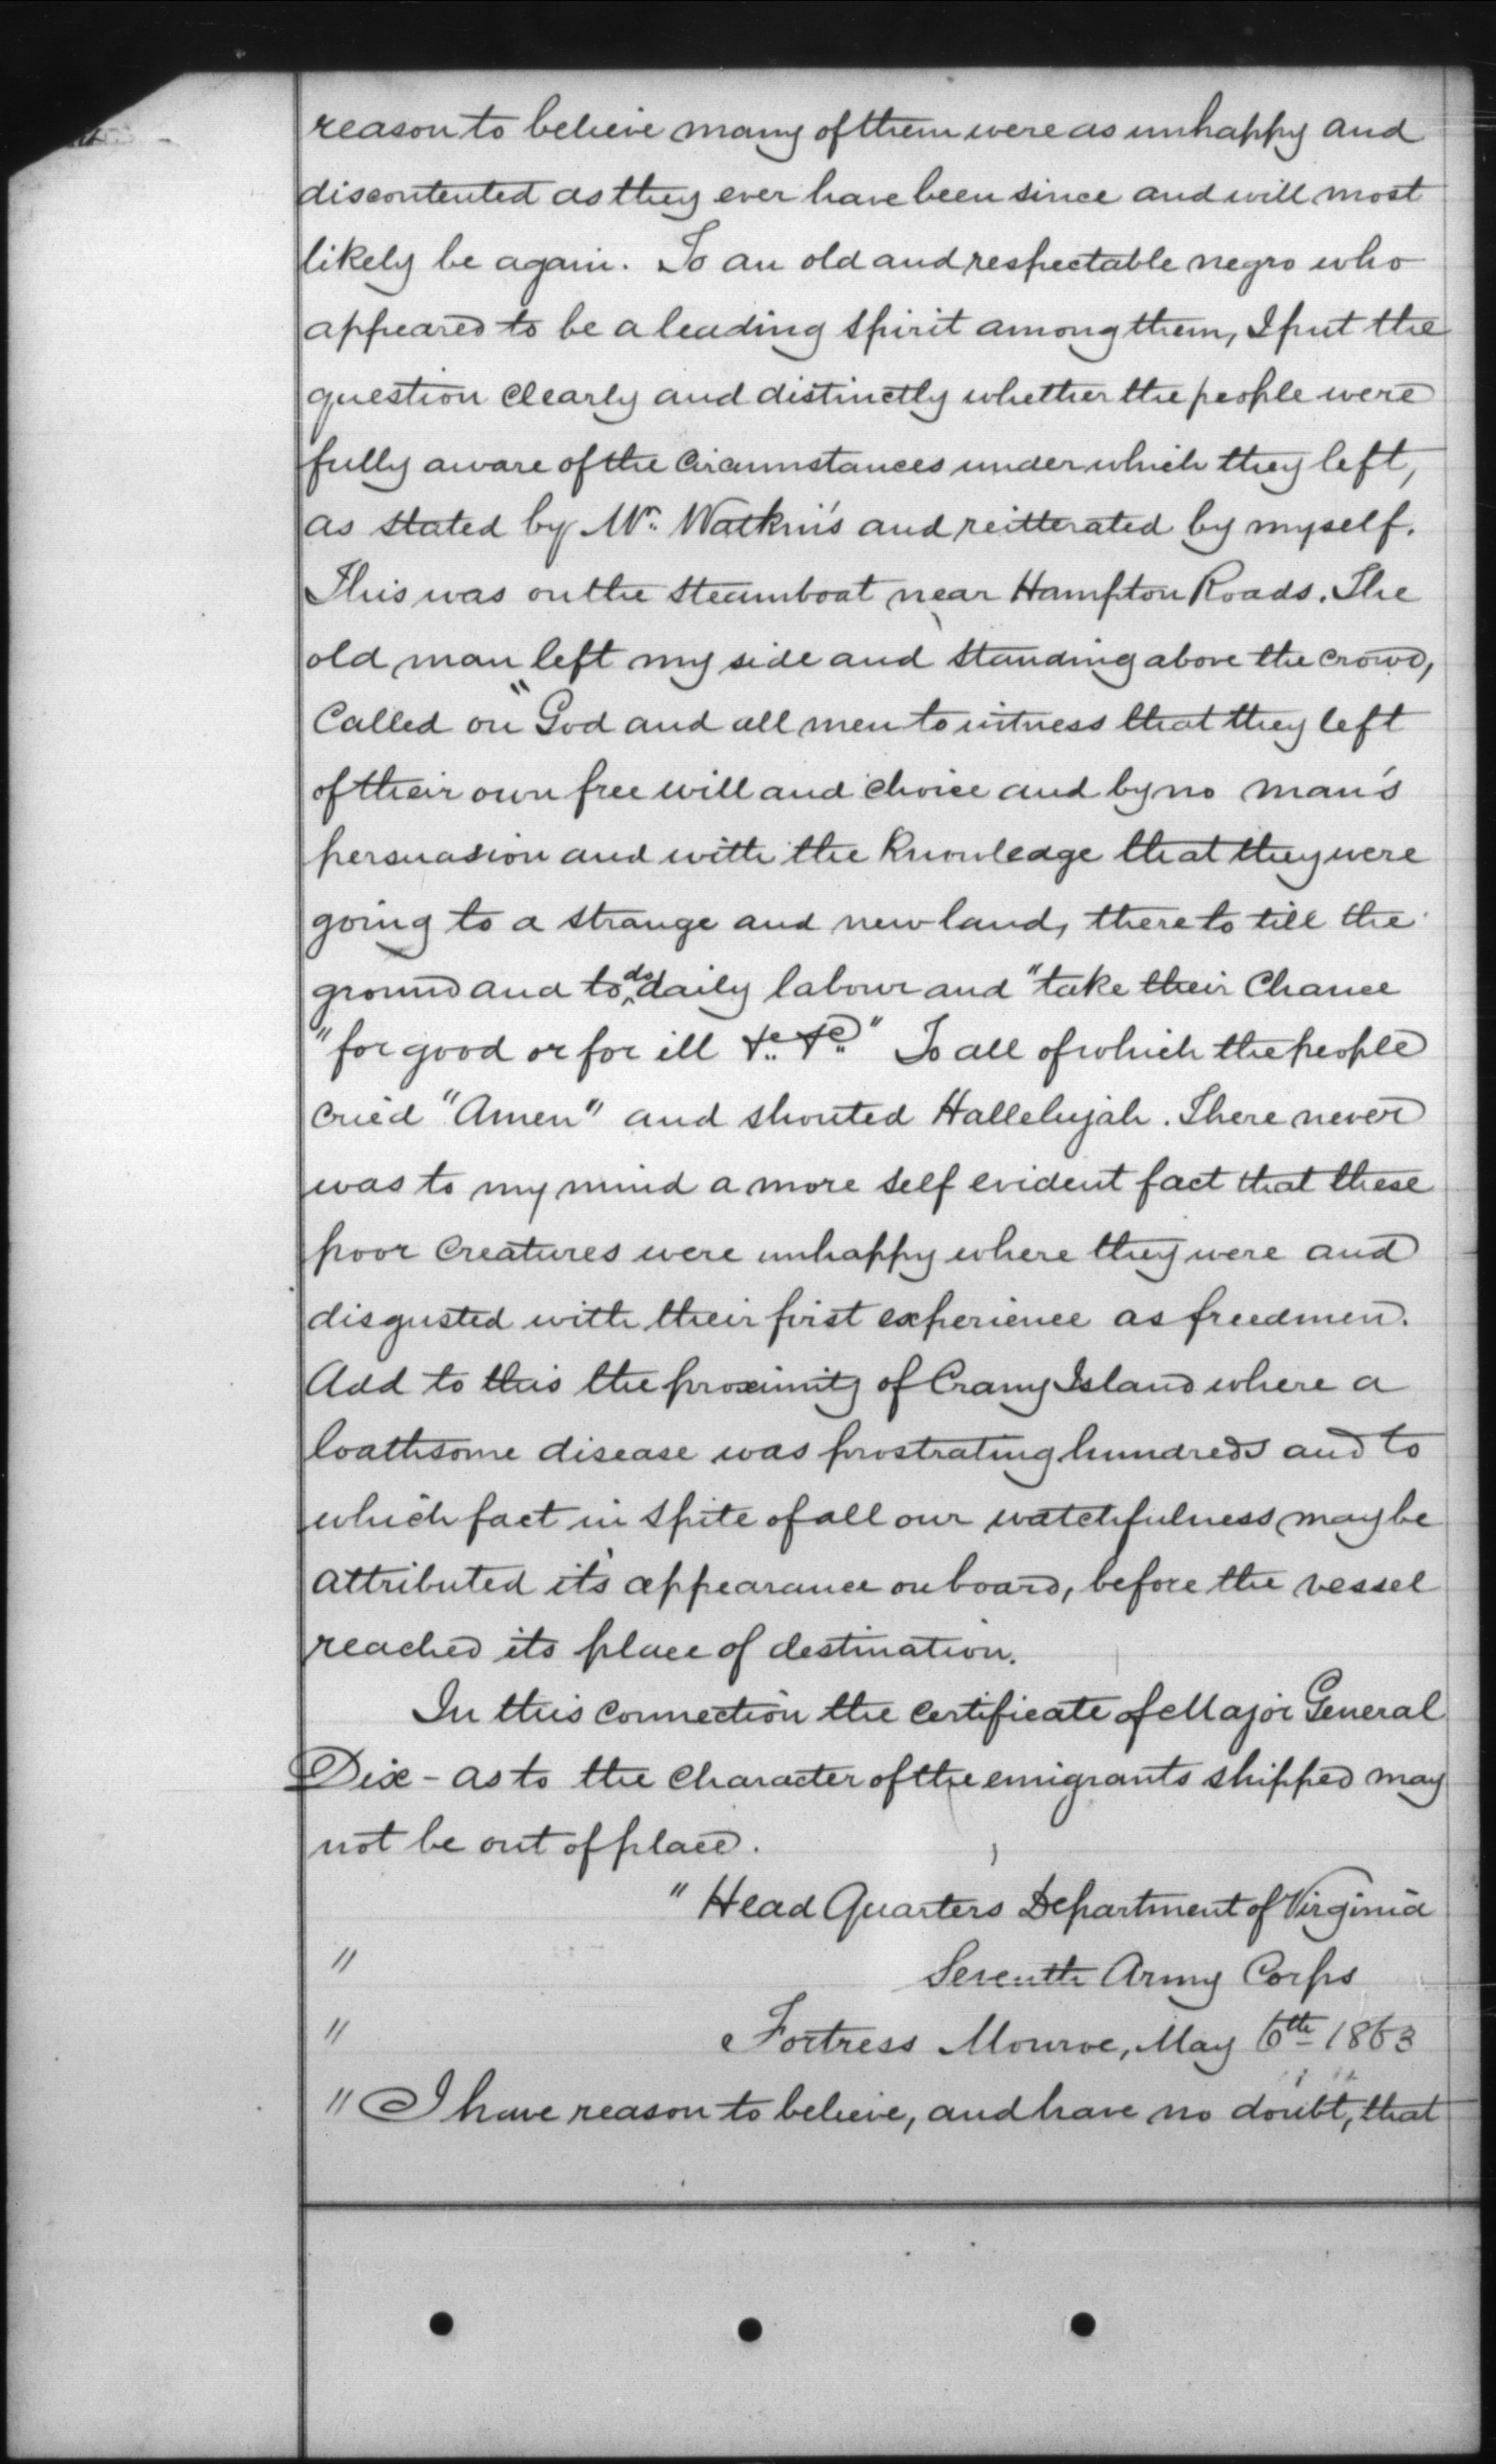 reason to believe many of them were as unhappy and
discontented as they ever have been since and will most
likely be again. To an old and respectable negro who
appeared to be a leading spirit among them, I put the
question clearly and distinctly whether the people were
fully aware of the circumstances under which they left,
as stated by Mr. Watkins and reitterated by myself.
This was on the steamboat near Hampton Roads. The
old man left my side and standing above the crowd,
Called on "God and all men to witness that they left
of their own free will and choice and by no man's
persuasion and with the knowledge that they were
going to a strange and new land, there to till the
ground and to do daily labour and "take their Chance
"for good or for ill &c. &c." To all of which the people
cried "Amen" and shouted Hallelujah. There never
was to my mind a more self evident fact that these
poor creatures were unhappy where they were and
disgusted with their first experience as freedmen.
Add to this the proximity of Crany Island where a
loathsome disease was prostrating hundreds and to
which fact in spite of all our watchfulness may be
attributed it's appearance on board, before the vessel
reached its place of destination.
In this connection the certificate of Major General
Dix - as to the character of the emigrants shipped may
not be out of place.
"Head Quarters Department of Virginia
" Seventh Army Corps
" Fortress Monroe, May 6th 1863
" I have reason to believe, and have no doubt, that